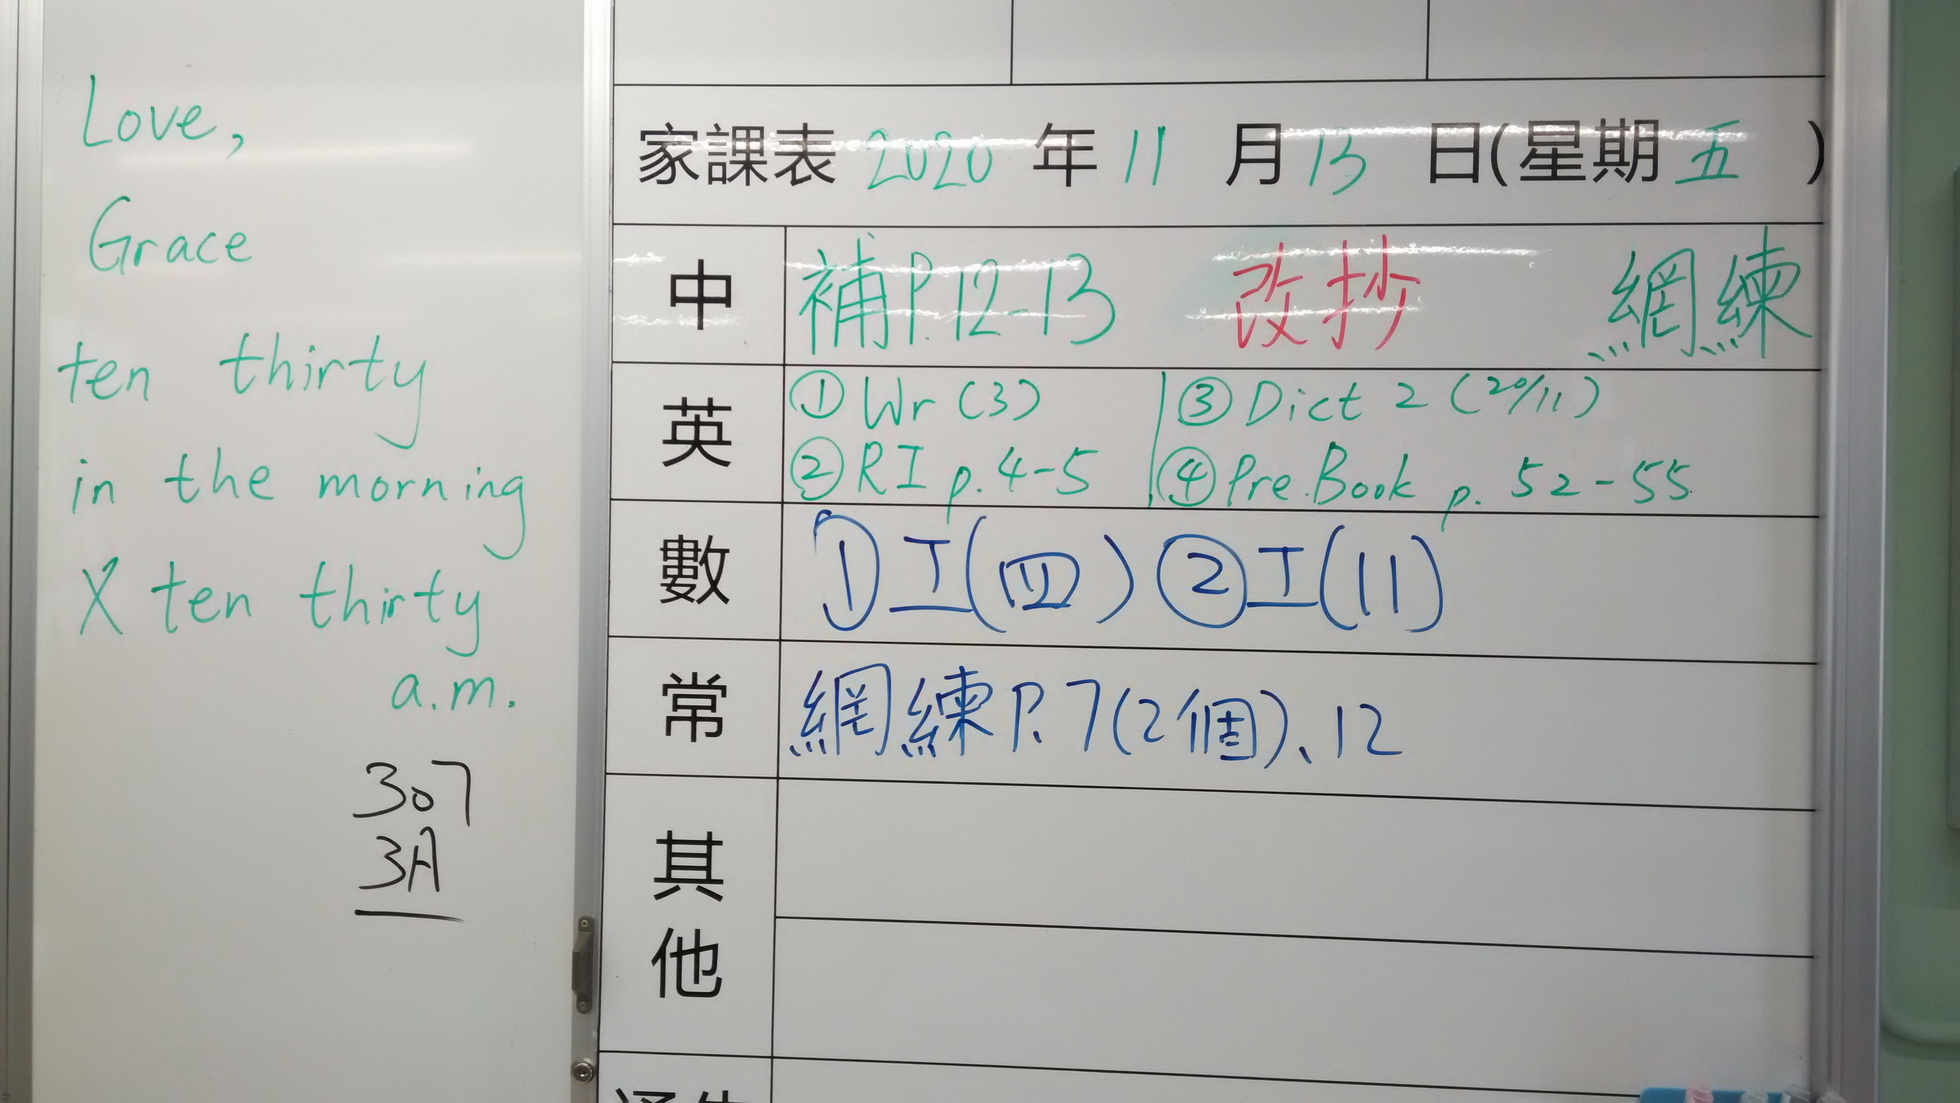 Love,
Grace
ten thirty
in the morning
X ten thirty
a.m.
307
3A
家課表 2020 年 11 月 13 日(星期 五 )
中 補P.12-13 改抄 網練
英 ① Wr (3) ③ Dict 2 (20/11)
② RI p. 4-5 ④ Pre.Book p. 52-55
數 ① 工(四) ② 工(11)
常 網練 P.7(2個)、12
其
他